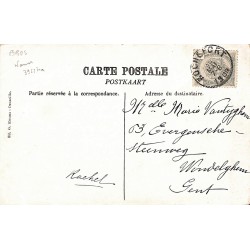 CARTE POSTALE
POSTKAART
Partie réservée à la correspondance.
Adresse du destinataire.
Mlle Maria Vantyghem
63, Evergemsche-
steenweg
Wondelghem
Gent
Rachel